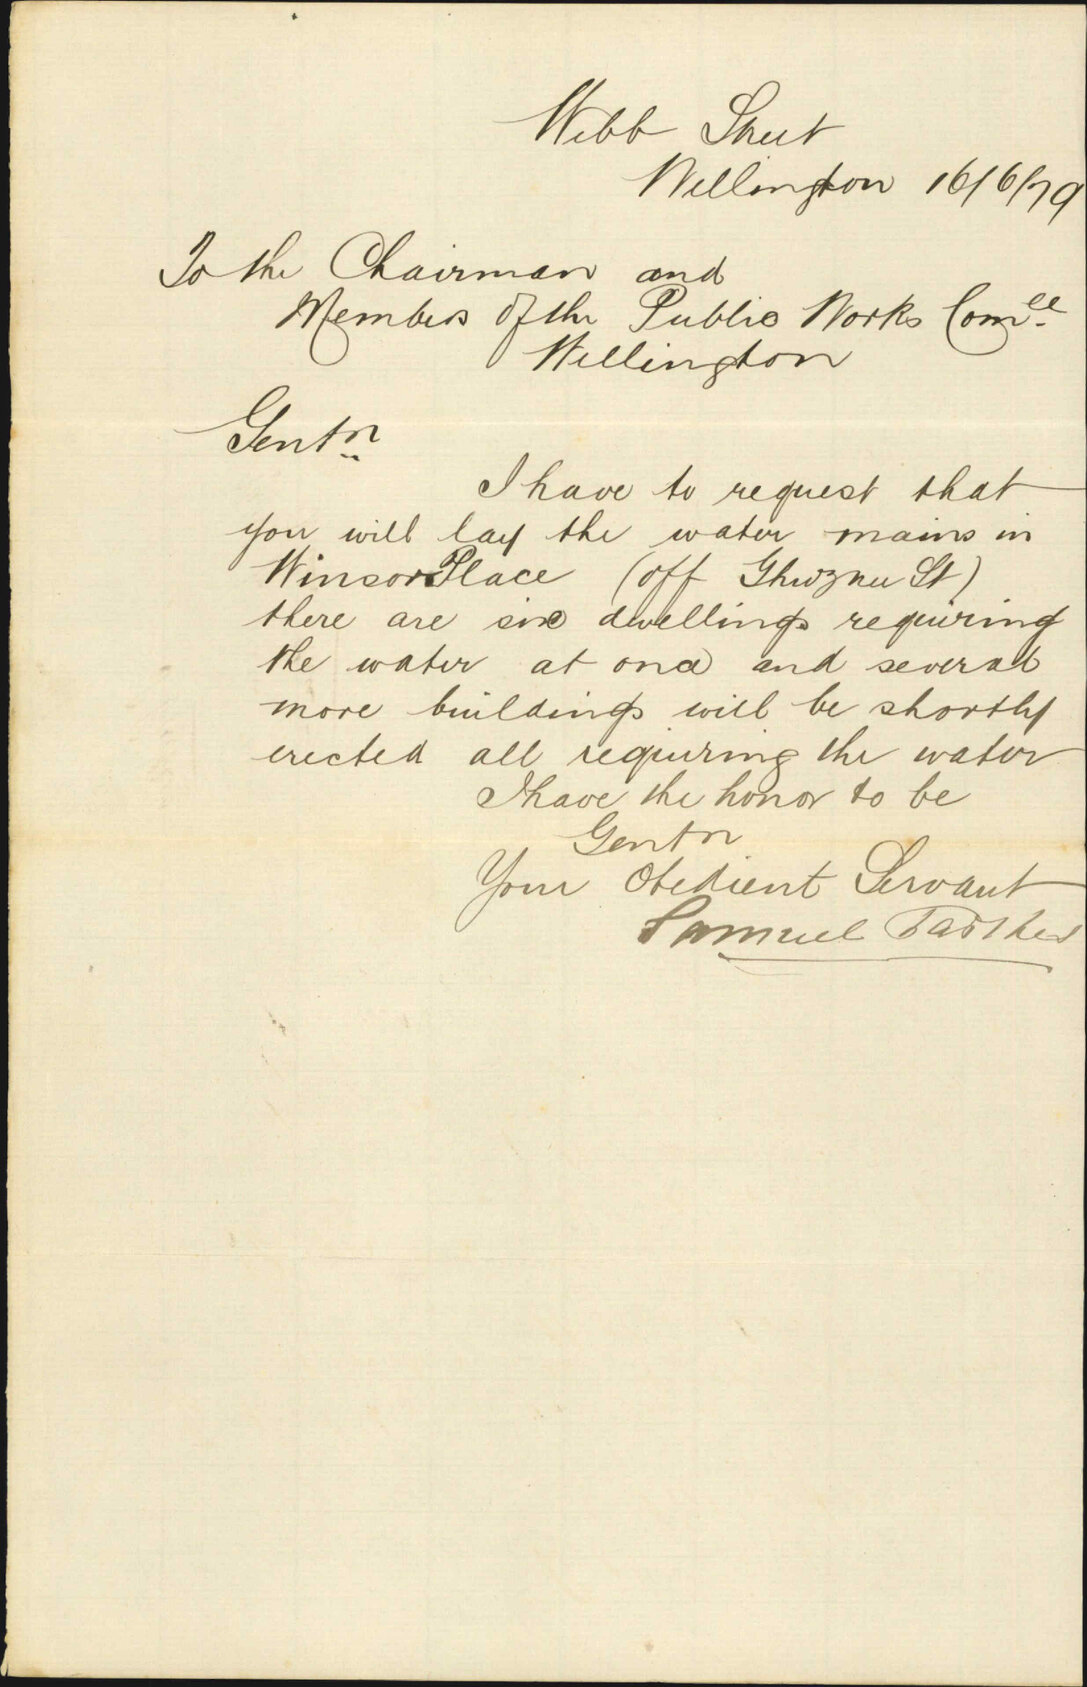 Webb Street
Wellington 16/6/79
To the Chairman and
Members of the Public Works Com^ee
Wellington
Gentn
I have to request that
you will lay the water mains in
Winsor Place (off Ghuznee St)
there are six dwellings requiring
the water at once and several
more buildings will be shortly
erected all requiring the water
I have the honor to be
Gentn
Your Obedient Servant
Samuel